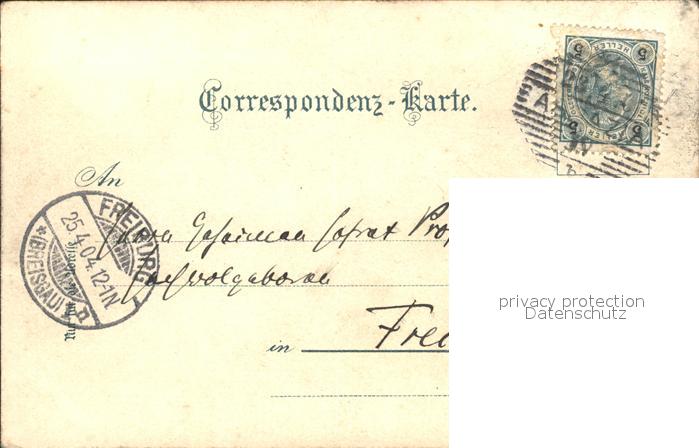 5 HELLER 5
Correspondenz-Karte.
An
FREIBURG
25.4.04.12-1N.
*(BREISGAU)*
a
Herrn Geheimen Hofrat Prof
Hochwolgeboren
Nur für die Adresse
privacy protection
Datenschutz
in Frei